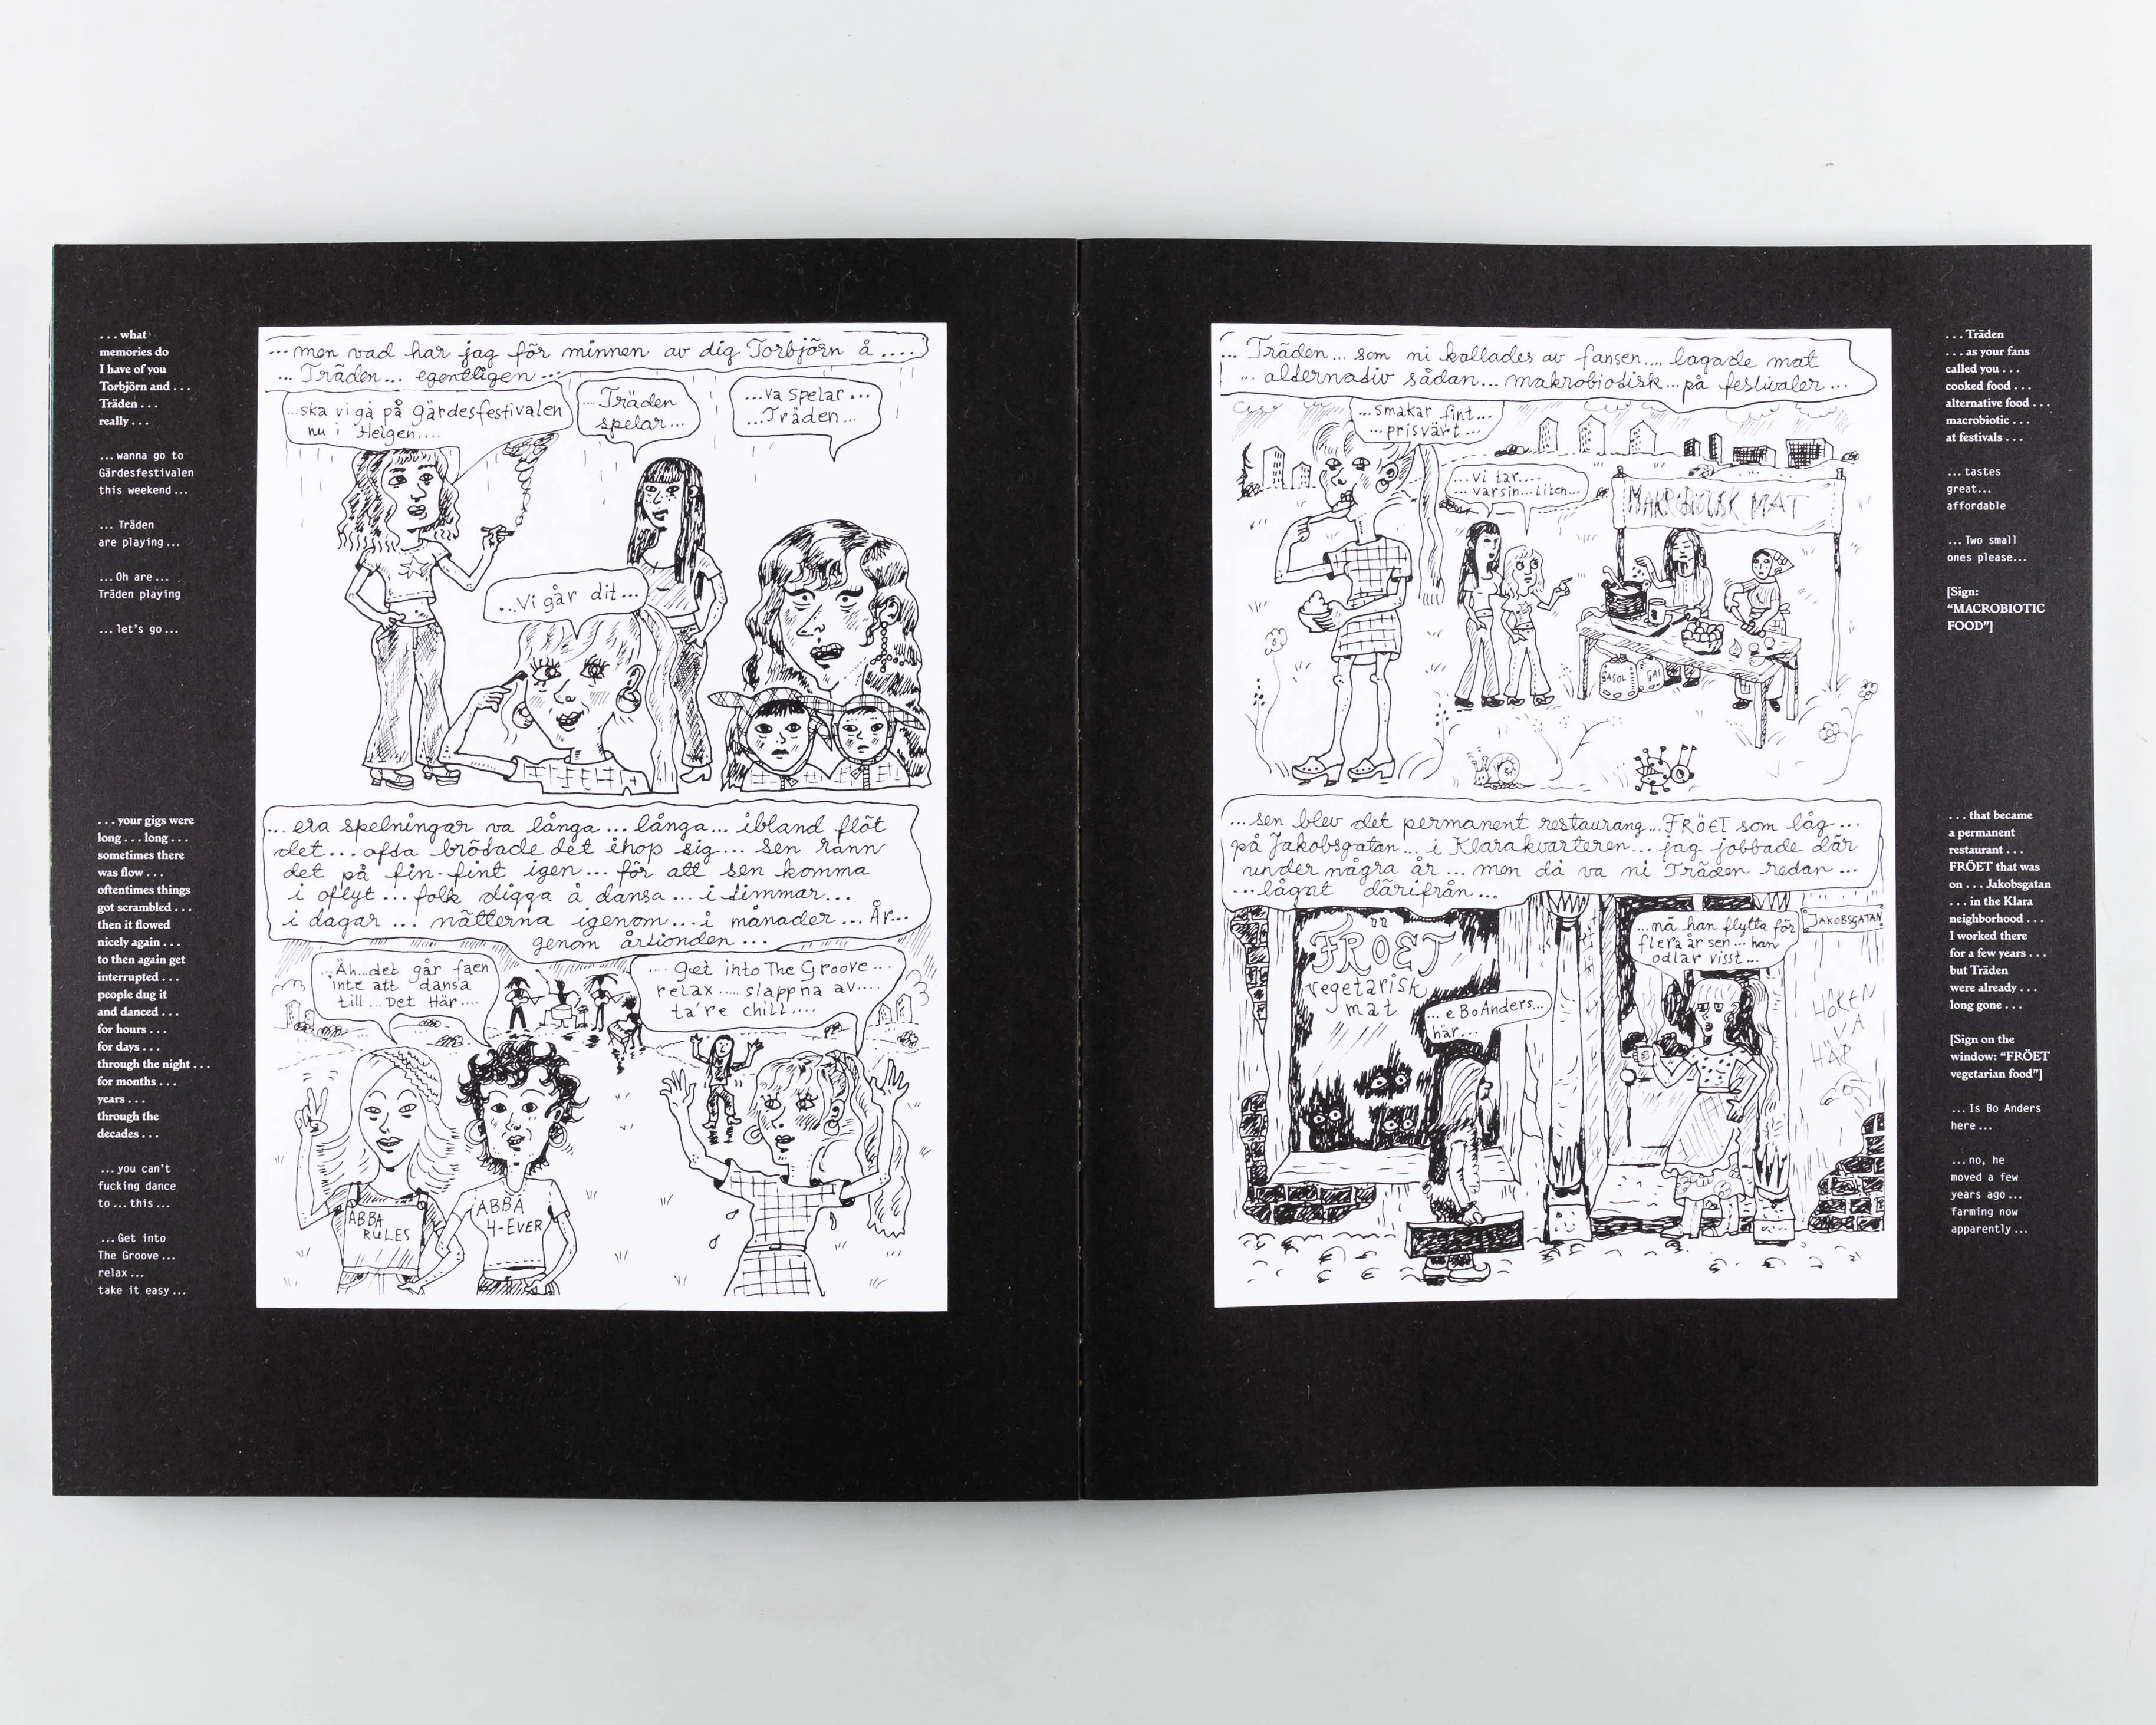 . . . what
memories do
I have of you
Torbjörn and . . .
Träden . . .
really . . .
... wanna go to
Gärdesfestivalen
this weekend ...
... Träden
are playing ...
... Oh are ...
Träden playing
... let's go ...
. . . your gigs were
long . . . long . . .
sometimes there
was flow . . .
oftentimes things
got scrambled . . .
then it flowed
nicely again . . .
to then again get
interrupted . . .
people dug it
and danced . . .
for hours . . .
for days . . .
through the night . . .
for months . . .
years . . .
through the
decades . . .
... you can't
fucking dance
to ... this ...
... Get into
The Groove ...
relax ...
take it easy ...
... men vad har jag för minnen av dig Torbjörn å ....
... Träden ... egentligen ...
...ska vi gå på gärdesfestivalen
nu i Helgen....
...Träden
spelar...
...va spelar ...
...Träden...
...Vi går dit...
... era spelningar va långa ... långa... ibland flöt
det... ofta brötade det ihop sig... sen rann
det på fin-fint igen... för att sen komma
i oflyt ... folk digga å dansa ... i timmar...
i dagar ... nätterna igenom... i månader ... År...
genom årtionden ...
...Äh...det går faen
inte att dansa
till ... Det Här....
.... Get into The Groove ....
relax ..... slappna av....
ta're chill....
ABBA
RULES
ABBA
4-EVER
... Träden ... som ni kallades av fansen.... lagade mat
... alternativ sådan... makrobiotisk... på festivaler ...
...smakar fint...
...prisvärt ...
...vi tar....
...varsin...liten...
MAKROBIOTISK MAT
GASOL
GAS
...sen blev det permanent restaurang...FRÖET som låg...
på Jakobsgatan... i Klarakvarteren... jag jobbade där
under några år ... men då va ni Träden redan ...
...långt därifrån...
FRÖET
vegetarisk
mat
...e Bo Anders...
här...
...nä han flytta för
flera år sen... han
odlar visst...
JAKOBSGATAN
HÄR
. . . Träden
. . . as your fans
called you . . .
cooked food . . .
alternative food . . .
macrobiotic . . .
at festivals . . .
... tastes
great...
affordable
... Two small
ones please...
[Sign:
“MACROBIOTIC
FOOD”]
. . . that became
a permanent
restaurant . . .
FRÖET that was
on . . . Jakobsgatan
. . . in the Klara
neighborhood . . .
I worked there
for a few years . . .
but Träden
were already . . .
long gone . . .
[Sign on the
window: “FRÖET
vegetarian food”]
... Is Bo Anders
here ...
... no, he
moved a few
years ago ...
farming now
apparently ...